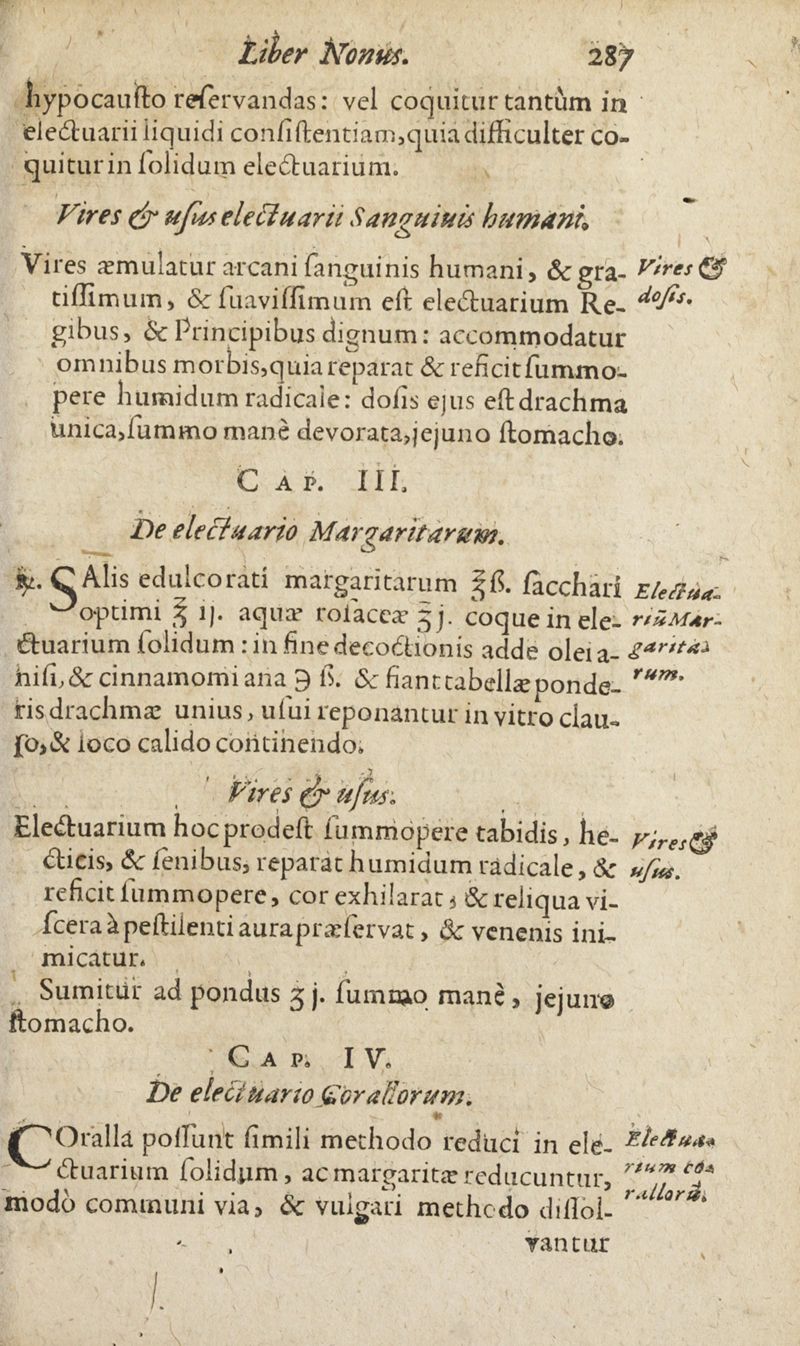 Liber Nonus. 287
hypocausto reſervandas: vel coquitur tantùm in
electuarii liquidi conſiſtentiam, quia difficulter co-
quitur in ſolidum electuarium.
Vires & uſus electuarii Sanguiuis humani.
Vires æmulatur arcani ſanguinis humani, & gra- Vires &
tiſſimum, & ſuaviſſimum eſt electuarium Re- doſis.
gibus, & Principibus dignum: accommodatur
omnibus morbis, quia reparat & reficit ſummo-
pere humidum radicale: doſis ejus eſt drachma
unica, ſummo manè devorata, jejuno ſtomacho.
CAP. III.
De electuario Margaritarum.
℞. SAlis edulcorati margaritarum ℥ß. ſacchari Electua-
optimi ℥ ij. aquæ roſaceæ ℥j. coque in ele- riū Mar-
ctuarium ſolidum: in fine decoctionis adde olei a- garita-
niſi, & cinnamomi ana ℈ ß. & fiant tabellæ ponde- rum.
ris drachmæ unius, uſui reponantur in vitro clau-
ſo, & loco calido continendo.
Vires & uſus.
Electuarium hoc prodeſt ſummopere tabidis, he- Vires &
cticis, & ſenibus, reparat humidum radicale, & uſus.
reficit ſummopere, cor exhilarat, & reliqua vi-
ſcera à peſtilenti aura præſervat, & venenis ini-
micatur.
Sumitur ad pondus ʒ j. ſummo manè, jejuno
ſtomacho.
CAP. IV.
De electuario Corallorum.
COralla poſſunt ſimili methodo reduci in ele- Electua-
ctuarium ſolidum, ac margaritæ reducuntur, rium co-
modò communi via, & vulgari methodo diſſol- rallorū.
vantur